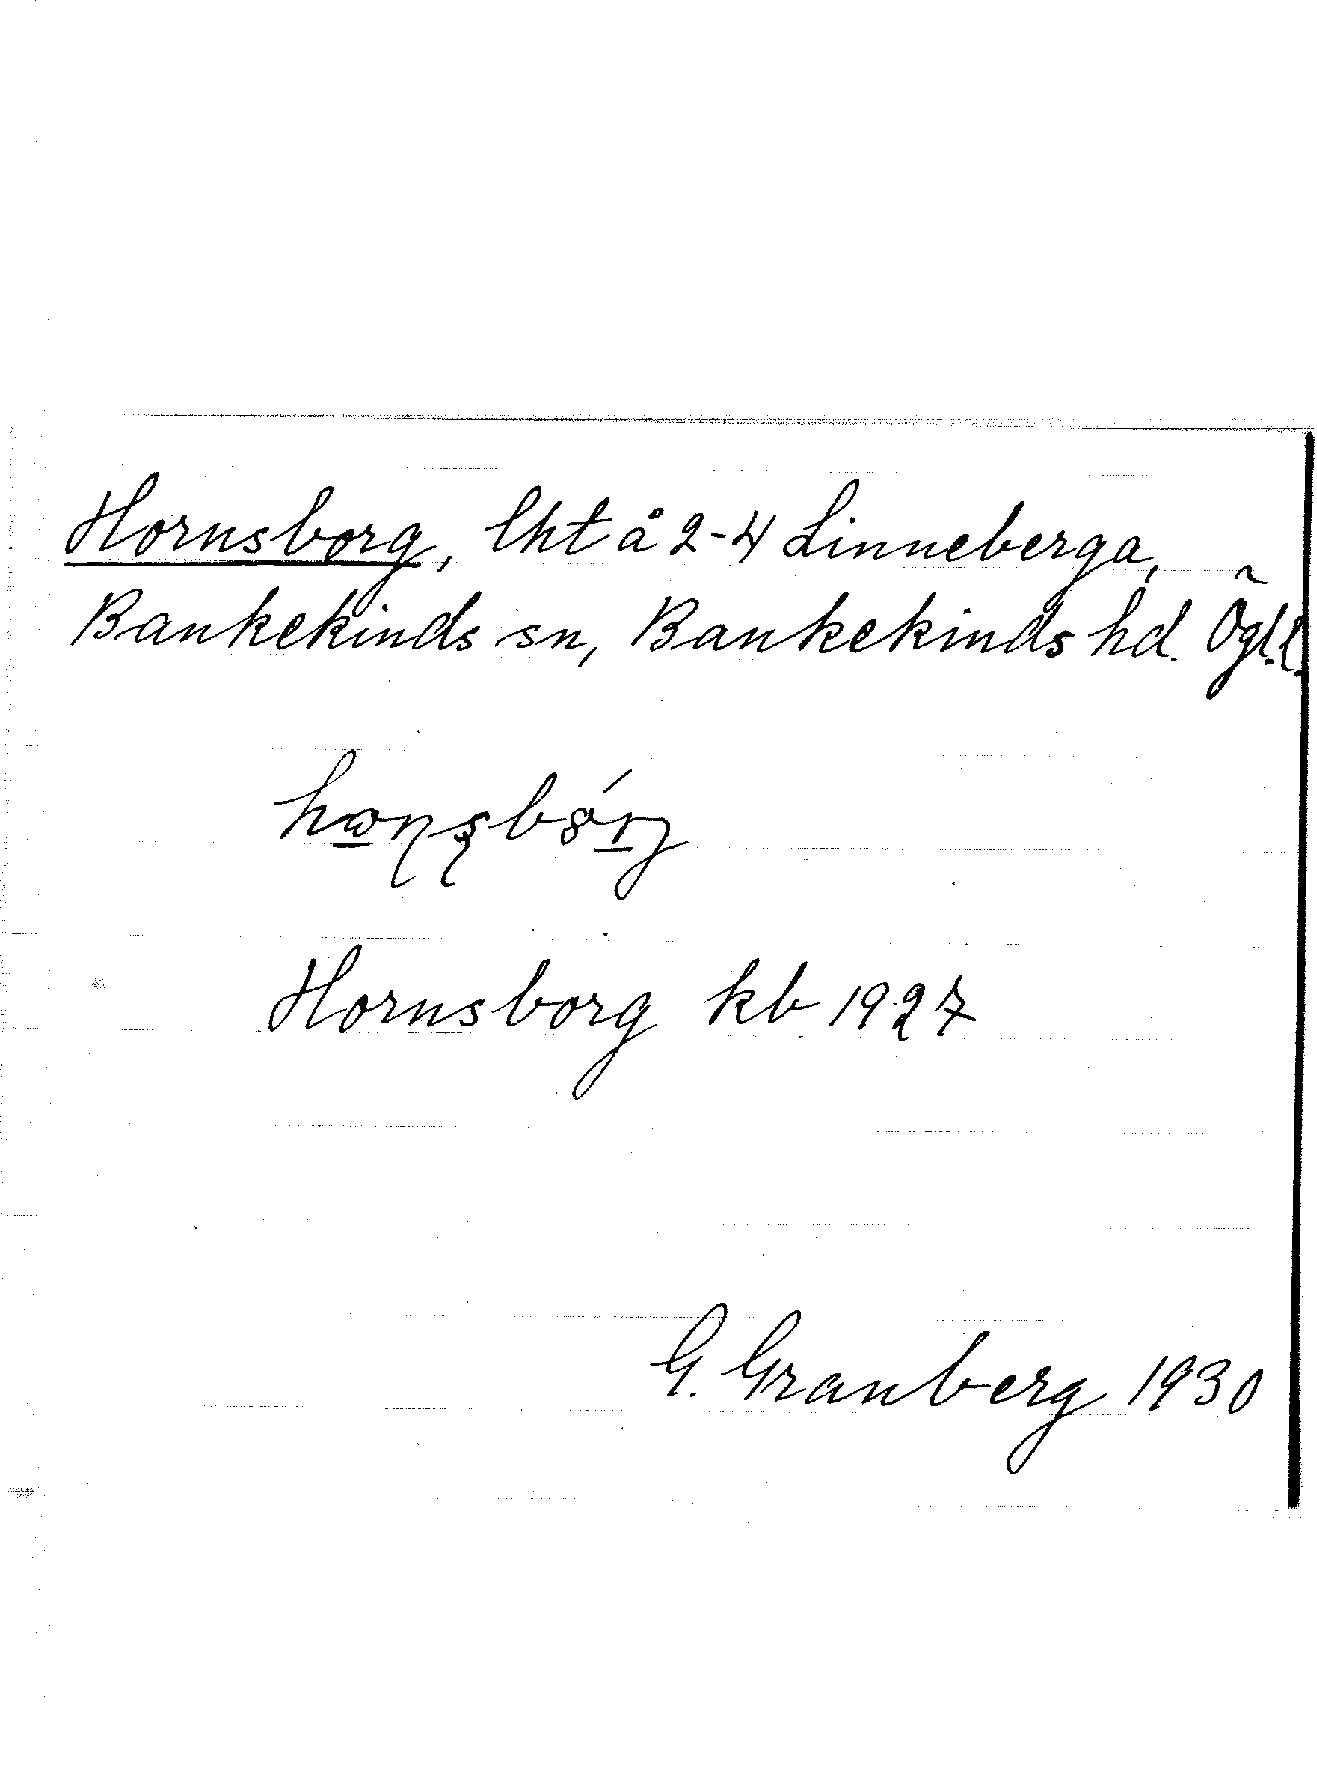 Hornsborg, lht å 2-4 Linneberga,
Bankekinds sn, Bankekinds hd. Ögl.l.
Hornsborg kb 1927
G. Granberg 1930